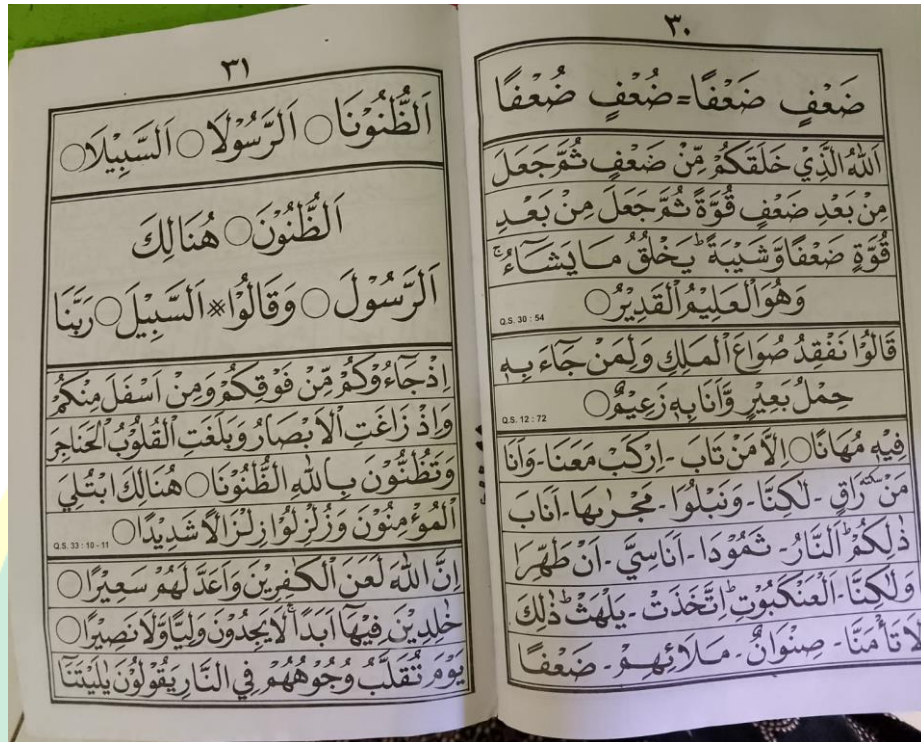 ٣٠
ضَعْفٍ ضَعْفًا = ضُعْفٍ ضُعْفًا
اَللّٰهُ الَّذِيْ خَلَقَكُمْ مِّنْ ضَعْفٍ ثُمَّ جَعَلَ
مِنْ بَعْدِ ضَعْفٍ قُوَّةً ثُمَّ جَعَلَ مِنْ بَعْدِ
قُوَّةٍ ضَعْفًا وَّشَيْبَةً ۗ يَخْلُقُ مَا يَشَاۤءُ ۚ
وَهُوَ الْعَلِيْمُ الْقَدِيْرُ ○
Q.S. 30 : 54
قَالُوْا نَفْقِدُ صُوَاعَ الْمَلِكِ وَلِمَنْ جَاۤءَ بِهٖ
حِمْلُ بَعِيْرٍ وَّاَنَا بِهٖ زَعِيْمٌ ○
Q.S. 12 : 72
فِيْهِ مُهَانًا ○ اِلَّا مَنْ تَابَ - اِرْكَبْ مَعَنَا - وَاَنَا
مَنْ سكتة رَاقٍ - لٰكِنَّا - وَنَبْلُوَا - مَجْرٰىهَا - اَنَابَ
ذٰلِكُمْ ۗ اَلنَّارُ - ثَمُوْدَا - اَنَاسِيَّ - اَنْ طَهِّرَا
وَلٰكِنَّا - الْعَنْكَبُوْتِ ۚ اِتَّخَذَتْ - يَلْهَثْ ۗ ذٰلِكَ
لَا تَأْمَنَّا - صِنْوَانٌ - مَلَا۟ئِهِمْ - ضَعْفًا
٣١
اَلظُّنُوْنَا ○ اَلرَّسُوْلَا ○ اَلسَّبِيْلَا ○
اَلظُّنُوْنَ ○ هُنَالِكَ
اَلرَّسُوْلَ ○ وَقَالُوْا * اَلسَّبِيْلَ ○ رَبَّنَا
اِذْ جَاۤءُوْكُمْ مِّنْ فَوْقِكُمْ وَمِنْ اَسْفَلَ مِنْكُمْ
وَاِذْ زَاغَتِ الْاَبْصَارُ وَبَلَغَتِ الْقُلُوْبُ الْحَنَاجِرَ
وَتَظُنُّوْنَ بِاللّٰهِ الظُّنُوْنَا ○ هُنَالِكَ ابْتُلِيَ
الْمُؤْمِنُوْنَ وَزُلْزِلُوْا زِلْزَالًا شَدِيْدًا ○
Q.S. 33 : 10 - 11
اِنَّ اللّٰهَ لَعَنَ الْكٰفِرِيْنَ وَاَعَدَّ لَهُمْ سَعِيْرًا ○
خٰلِدِيْنَ فِيْهَآ اَبَدًا ۚ لَا يَجِدُوْنَ وَلِيًّا وَّلَا نَصِيْرًا ○
يَوْمَ تُقَلَّبُ وُجُوْهُهُمْ فِي النَّارِ يَقُوْلُوْنَ يٰلَيْتَنَآ